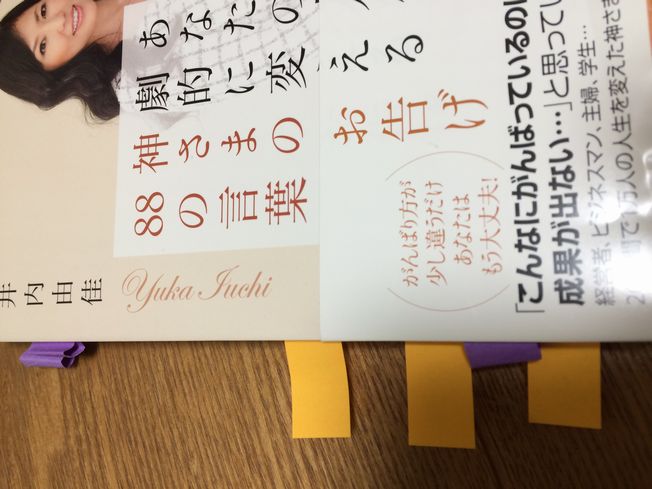 あなたの
劇的に変
神さまの
88の言葉
井内由佳
Yuka Iuchi
える
お告げ
がんばり方が
少し違うだけ
あなたは
もう大丈夫!
「こんなにがんばっているの
成果が出ない…」と思ってい
経営者、ビジネスマン、主婦、学生…
間で1万人の人生を変えた神さま